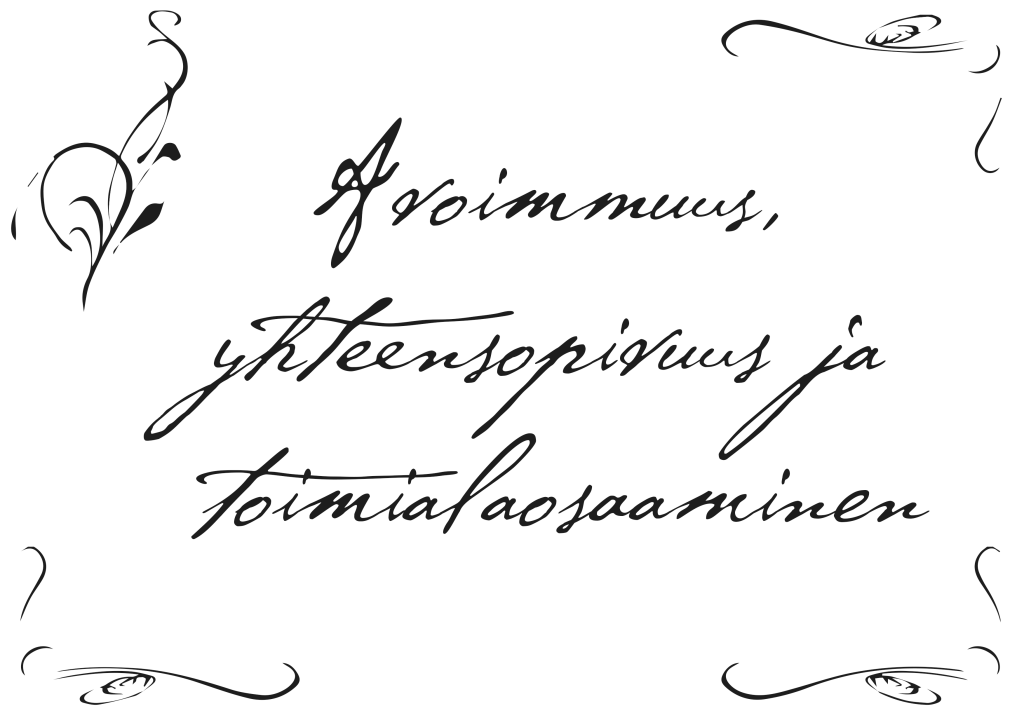 Avoimmuus,
yhteensopivuus ja
toimialaosaaminen